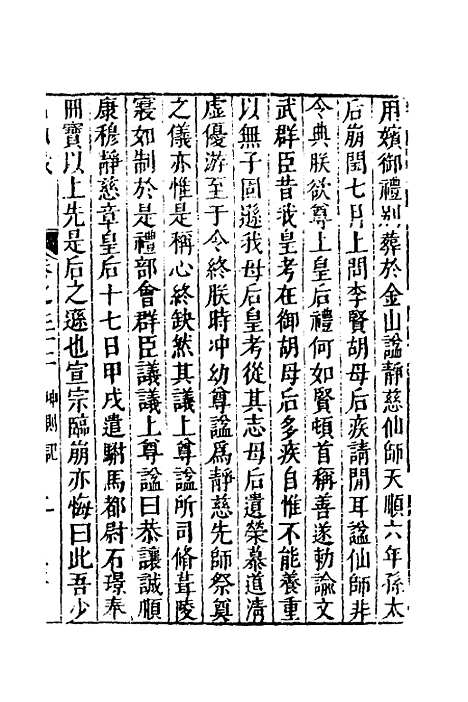 用嬪御禮别葬於金山諡靜慈仙師天順六年孫太
后崩閏七月上問李賢胡母后疾請閒耳諡仙師非
令典朕欲尊上皇后禮何如賢頓首稱善遂勅諭文
武群臣昔我皇考在御胡母后多疾自惟不能養重
以無子固遜我母后皇考從其志母后遺榮慕道清
虛優游至于令終朕時冲幼尊諡爲靜慈先師祭奠
之儀亦惟是稱心終缺然其議上尊諡所司脩葺陵
寢如制於是禮部會群臣議議上尊諡曰恭讓誠順
康穆靜慈章皇后十七日甲戌遣駙馬都尉石璟奉
冊寶以上先是后之遜也宣宗臨崩亦悔曰此吾少
坤則記